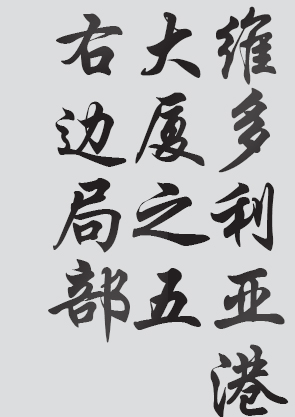 维多利亚港
大厦之五
右边局部